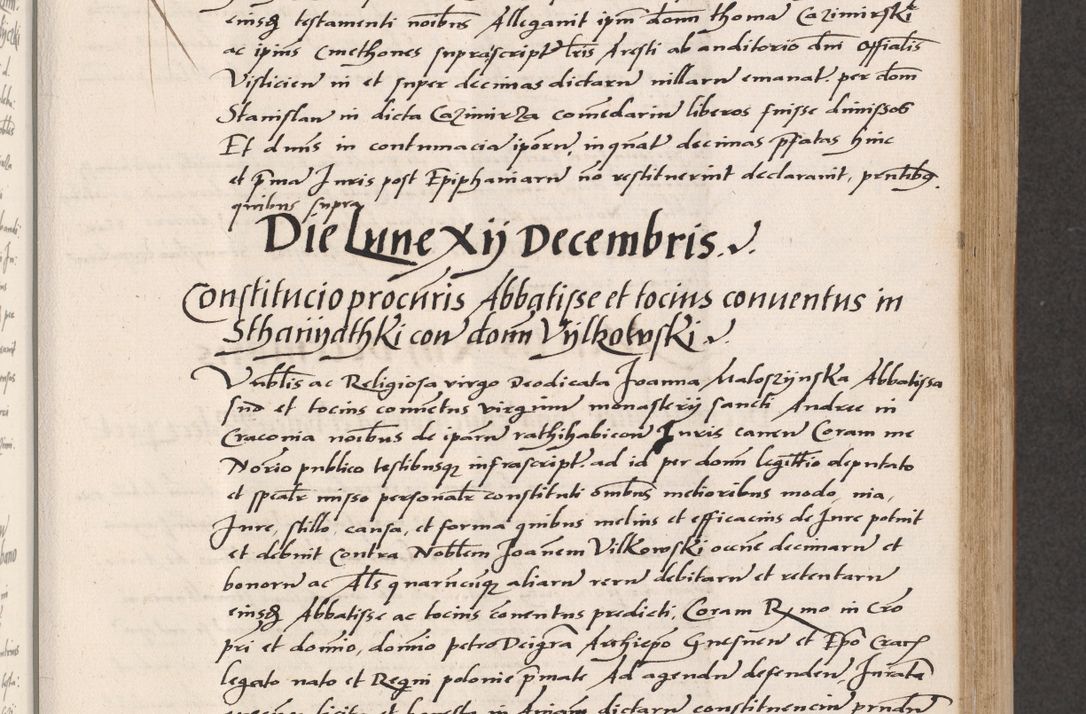 eiusq testamenti noibus Allegauit ipm dom thoma Cazimirski
ac ipius Cmethones suprascript lris Aresti ab auditorio dni Offialis
Visliciens in et super decimas dictaru villaru emanat. per dom
Stanislau in dicta Cazimirza comedariu liberos fuisse dimissos
Et dnus in contumacia iporu, inquat decimas pfatas hinc
et pma Juris post Epiphaniaru no restituerint declarauit, pntibq.
quibus supra
Die Lune Xij Decembris.
Constitucio procuris Abbatisse et tocius conuentus in
Sthanijathki con dom Vijlkowski
Vnblis ac Religiosa virgo Deodicata Joanna Maloszijnska Abbatissa
suo et tocius conuctus virginu monasterij sancti Andree in
Craconia noibus de iparu rathihabicon Juris canen Coram me
Norio publico testibusq infrascript. ad id per dom legittio deputato
et spealr misso personalr constituti ombus melioribus modo, via,
Jure, stillo, causa, et forma quibus melius et efficacius de Jure potuit
et debuit Contra Noblem Joanem Vilkowski occne decimaru et
bonoru ac Als quarucuq aliaru reru debitaru et retentaru
eiusq Abbatisse ac tocius conentus predicti, Coram Rmo in Cro
pri et domio, domio Petro Dei gra Archiepo Gnesnen et Epo Crac
legato nato et Regni polonie pmate Ad agendu defenden, Jurata